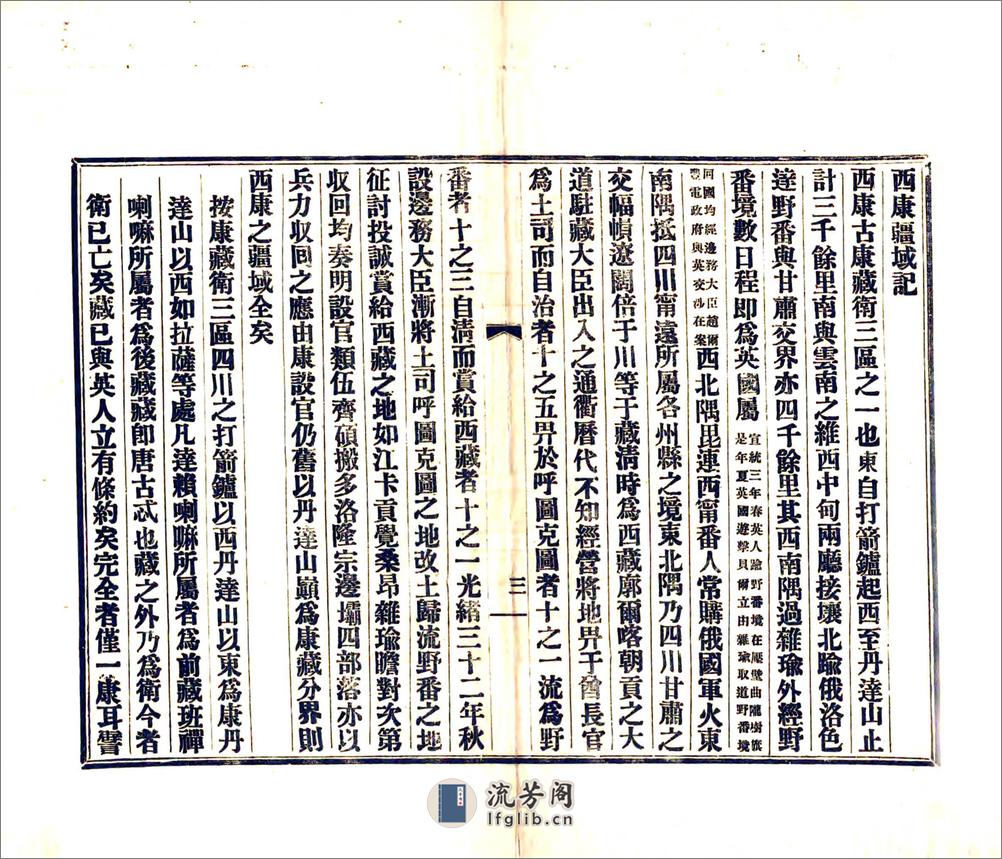 西康疆域記
西康古康藏衛三區之一也東自打箭鑪起西至丹達山止
計三千餘里南與雲南之維西中甸兩廳接壤北踰俄洛色
達野番與甘肅交界亦四千餘里其西南隅過雜瑜外經野
番境數日程即爲英國屬
宣統三年春英人踰野番境在壓壁曲隴樹旗
是年夏英國遊擊貝爾立由雜瑜取道野番境
回國均經邊務大臣趙爾
豐電政府與英交涉在案
西北隅毘連西甯番人常購俄國軍火東
南隅抵四川甯遠所屬各州縣之境東北隅乃四川甘肅之
交幅幀遼闊倍于川等于藏清時爲西藏廓爾喀朝貢之大
道駐藏大臣出入之通衢曆代不知經營將地畀于酋長官
爲土司而自治者十之五畀於呼圖克圖者十之一流爲野
三
番者十之三自清而賞給西藏者十之一光緒三十二年秋
設邊務大臣漸將土司呼圖克圖之地改土歸流野番之地
征討投誠賞給西藏之地如江卡貢覺桑昂雜瑜瞻對次第
收回均奏明設官類伍齊碩搬多洛隆宗邊壩四部落亦以
兵力收回之應由康設官仍舊以丹達山巔爲康藏分界則
西康之疆域全矣
按康藏衛三區四川之打箭鑪以西丹達山以東爲康丹
達山以西如拉薩等處凡達賴喇嘛所屬者爲前藏班禪
喇嘛所屬者爲後藏藏即唐古忒也藏之外乃爲衛今者
衛已亡矣藏已與英人立有條約矣完全者僅一康耳譬
流芳阁
lfglib.cn